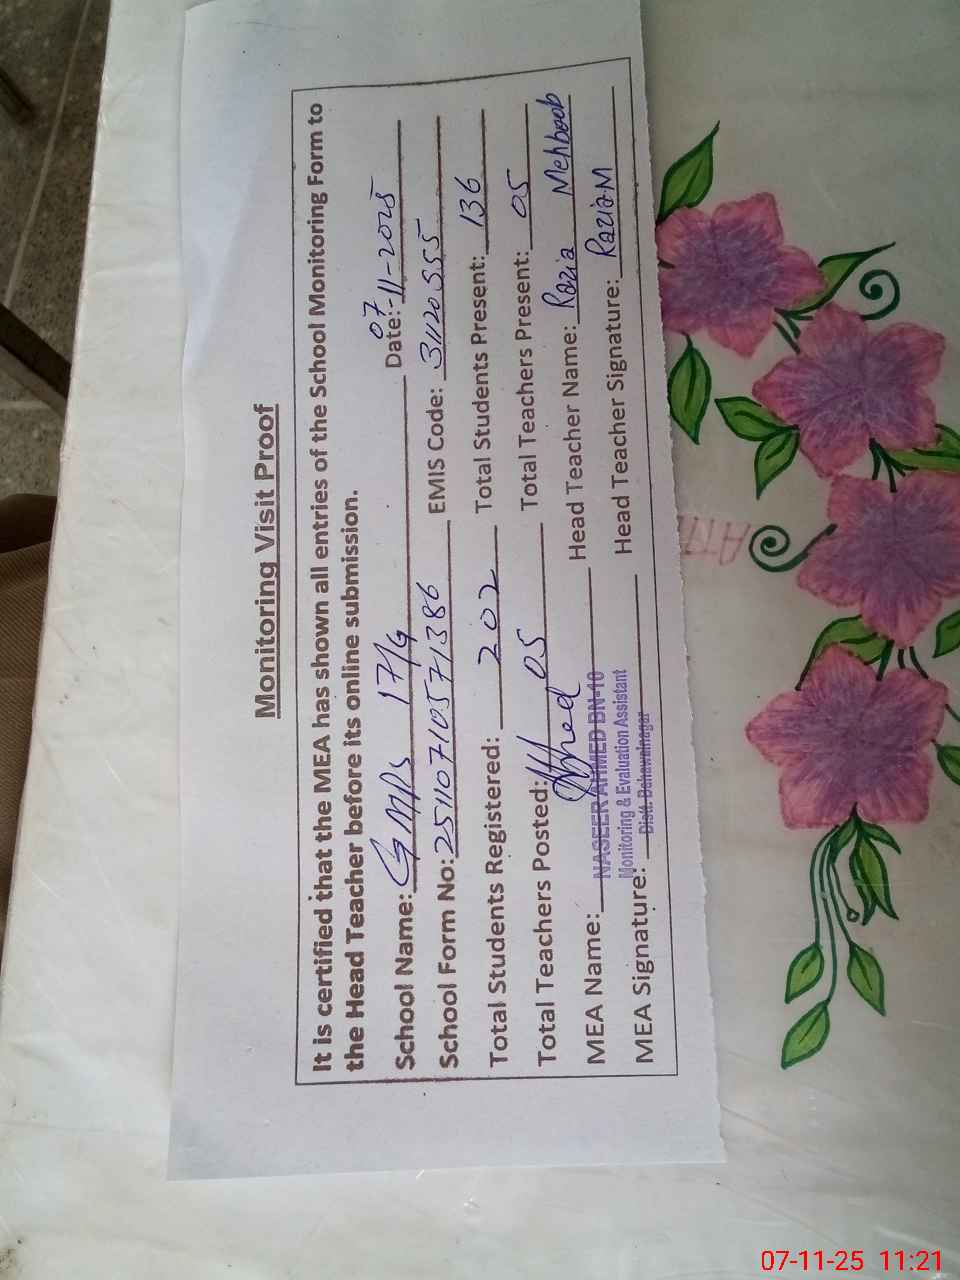 Monitoring Visit Proof
It is certified that the MEA has shown all entries of the School Monitoring Form to
the Head Teacher before its online submission.
School Name: GMPS 17/G Date:- 07-11-2025
School Form No: 25110710571386 EMIS Code: 31120355
Total Students Registered: 202 Total Students Present: 136
Total Teachers Posted: 05 Total Teachers Present: 05
MEA Name: NASEER AHMED BN-10 Head Teacher Name: Razia Mehboob
Monitoring & Evaluation Assistant
MEA Signature: Distt. Bahawalnagar Head Teacher Signature: Razia.M
07-11-25 11:21